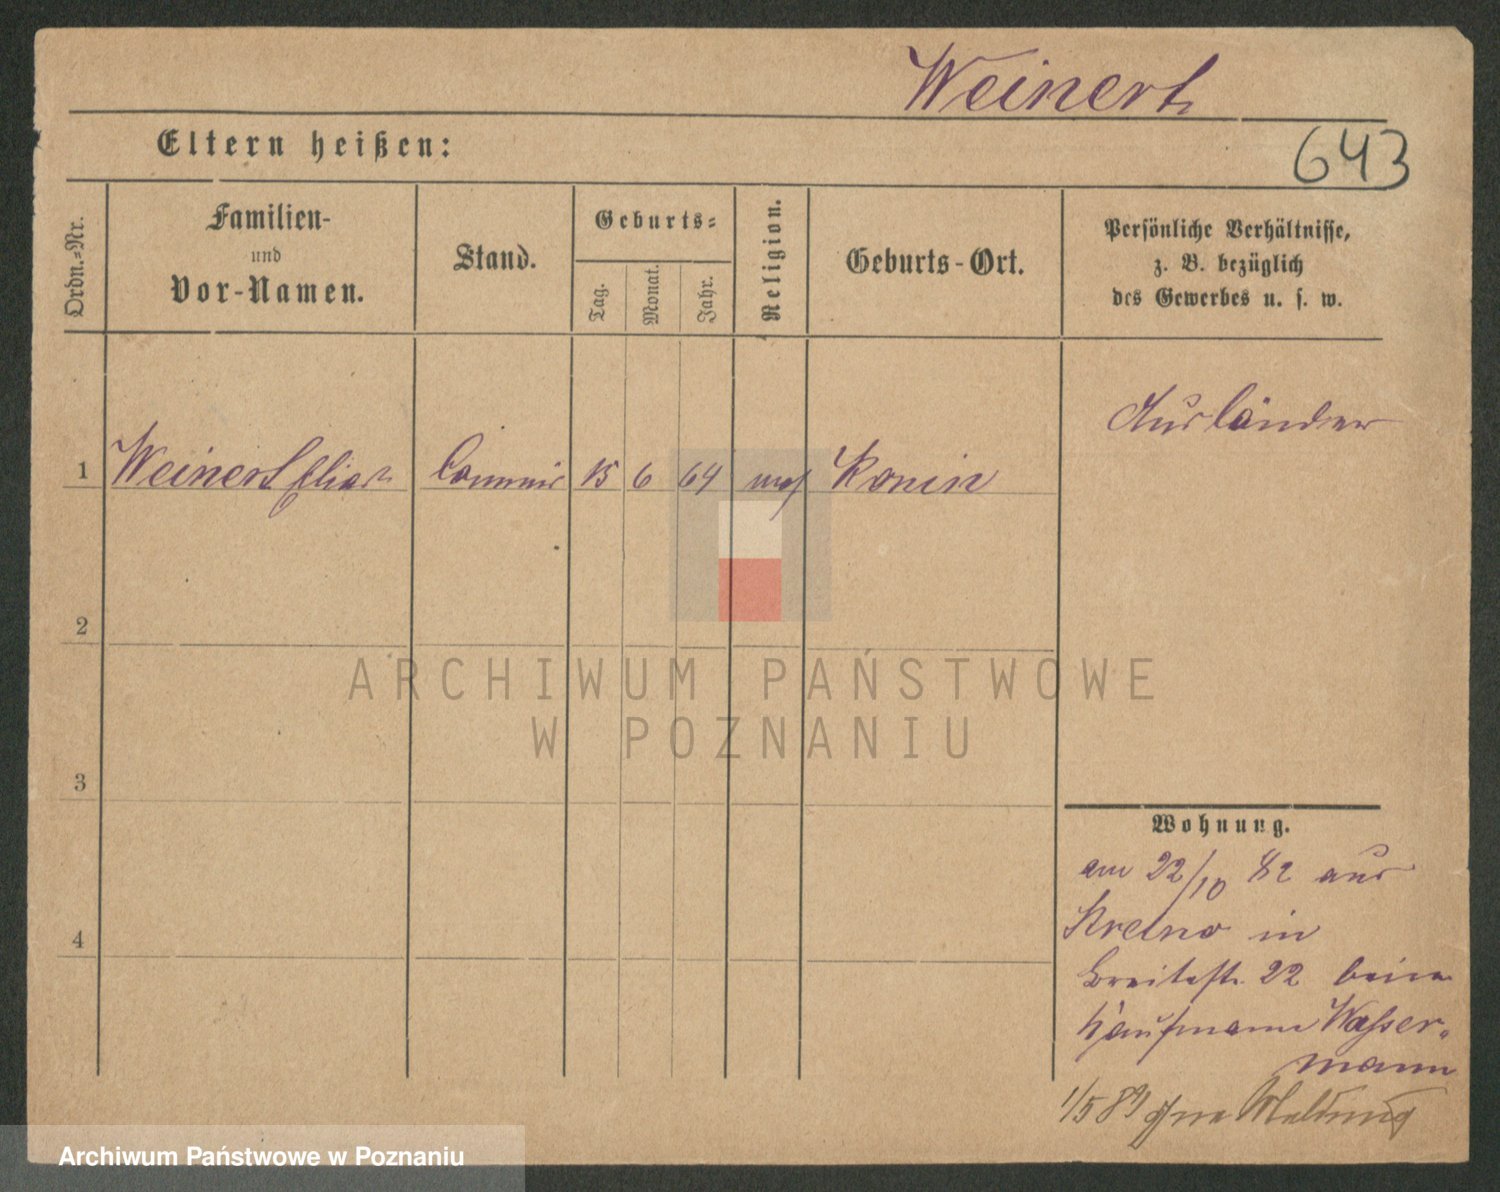 Weinert
Eltern heißen:
643
Ordn.-Nr.
Familien-
und
Vor-Namen.
Stand.
Geburts-
Tag.
Monat.
Jahr.
Religion.
Geburts-Ort.
Persönliche Verhältnisse,
z. B. bezüglich
des Gewerbes u. s. w.
Ausländer
1 Weinert Elias Commis 15 6 64 mos Konin
2
3
4
Wohnung.
am 22/10 82 aus
in
Breitestr. 22 beim
Kaufmann Wasser-
mann
1/5 89 ohne Meldung
ARCHIWUM PAŃSTWOWE
W POZNANIU
Archiwum Państwowe w Poznaniu